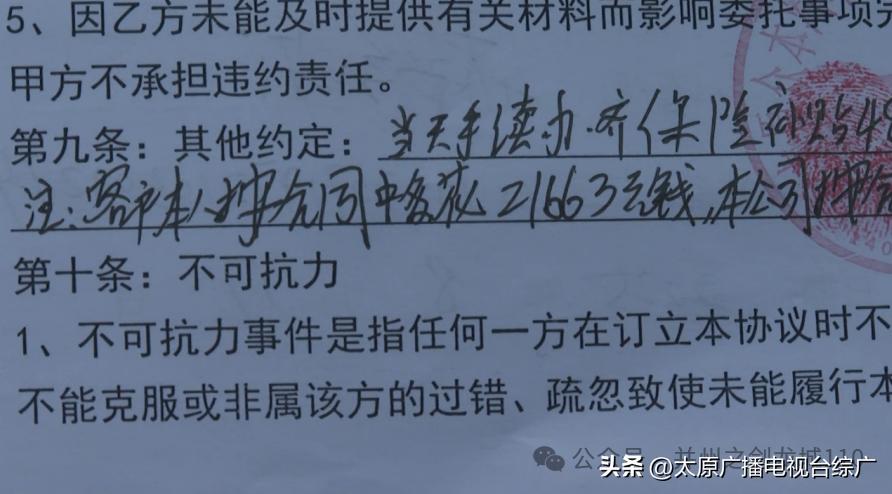 5、因乙方未能及时提供有关材料而影响委托事项完
甲方不承担违约责任。
第九条：其他约定：当天手续办齐保险补贴4
注：客户本人按合同中多花21663元钱，本公司按
第十条：不可抗力
1、不可抗力事件是指任何一方在订立本协议时不
不能克服或非属该方的过错、疏忽致使未能履行本
公众号 并州之剑龙城110
头条 @太原广播电视台综广